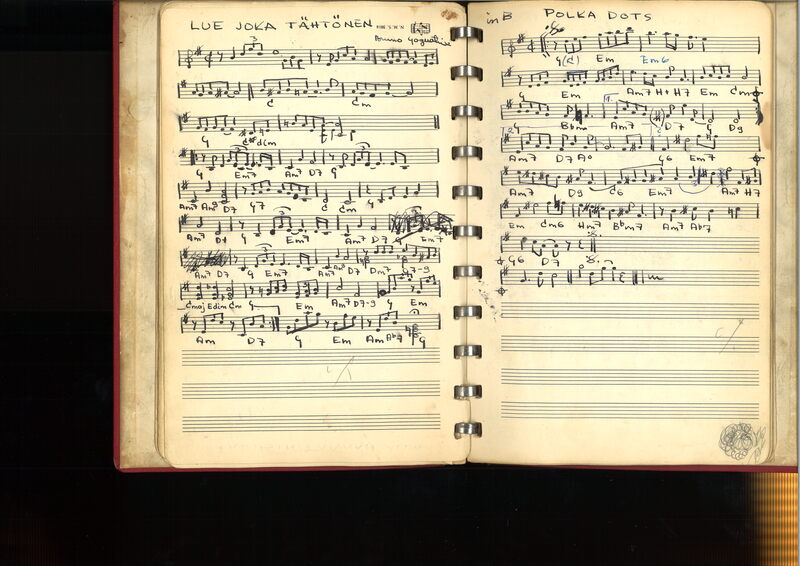 LUE JOKA TÄHTÖNEN
Bruno
C Cm
G C#dim
G Em7 Am7 D7 G
Am7 D7 G7 C Cm G
Am7 D7 G Em7 Am7 D7 Em7
Am7 D7 G Em7 Am7 D7 Dm7 G7-9
Cmaj Edim Cm G Em Am7 D7-9 G Em
Am D7 G Em Am Ab7 G
in B POLKA DOTS
G (C) Em Em6
G Em Am7 H7 Em Cm
1.
G Bbm Am7 D7 G D9
2.
Am7 D7 A° G6 Em7
Am7 D9 C6 Em7 Am7 H7
Em Cm6 Hm7 Bbm7 Am7 Ab7
G6 D7